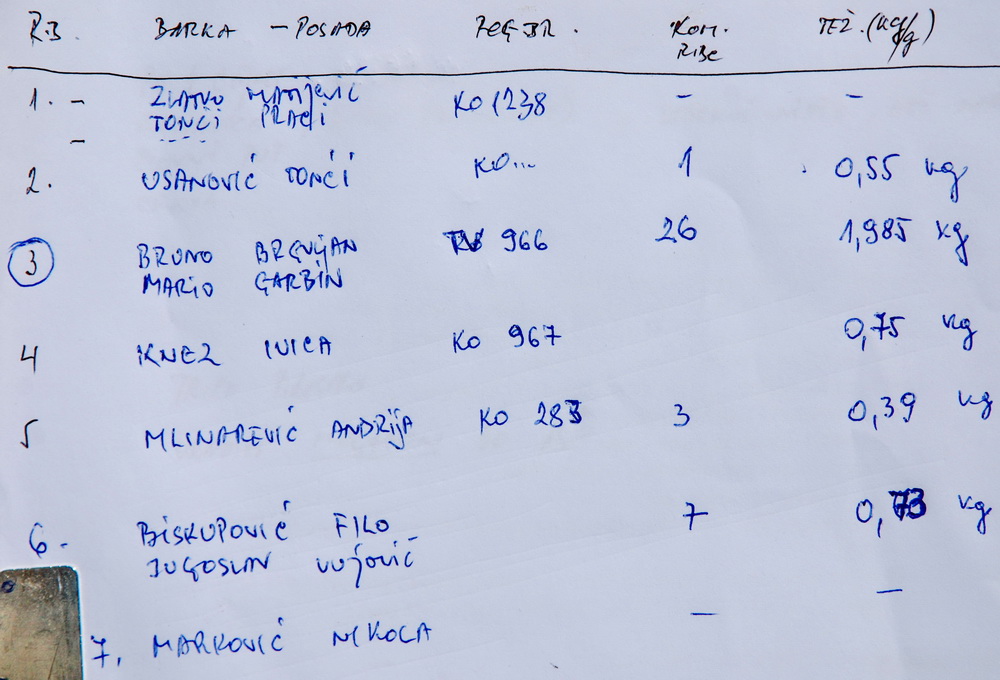 R.B. BARKA - POSADA REG.BR. KOM. RIBE TEŽ. (kg/g)
1. - ZLATKO MATIJEVIĆ KO 1238 - -
TONČI PRAČI
-
2. USANOVIĆ TONČI KO... 1 0,55 kg
3 BRUNO BRGUJAN 966 26 1,985 kg
MARIO GARBIN
4 KNEZ IVICA KO 967 0,75 kg
5 MLINAREVIĆ ANDRIJA KO 283 3 0,39 kg
6. BISKUPOVIĆ FILO 7 0,73 kg
JUGOSLAV VUJOVIĆ
7. MARKOVIĆ NIKOLA — —